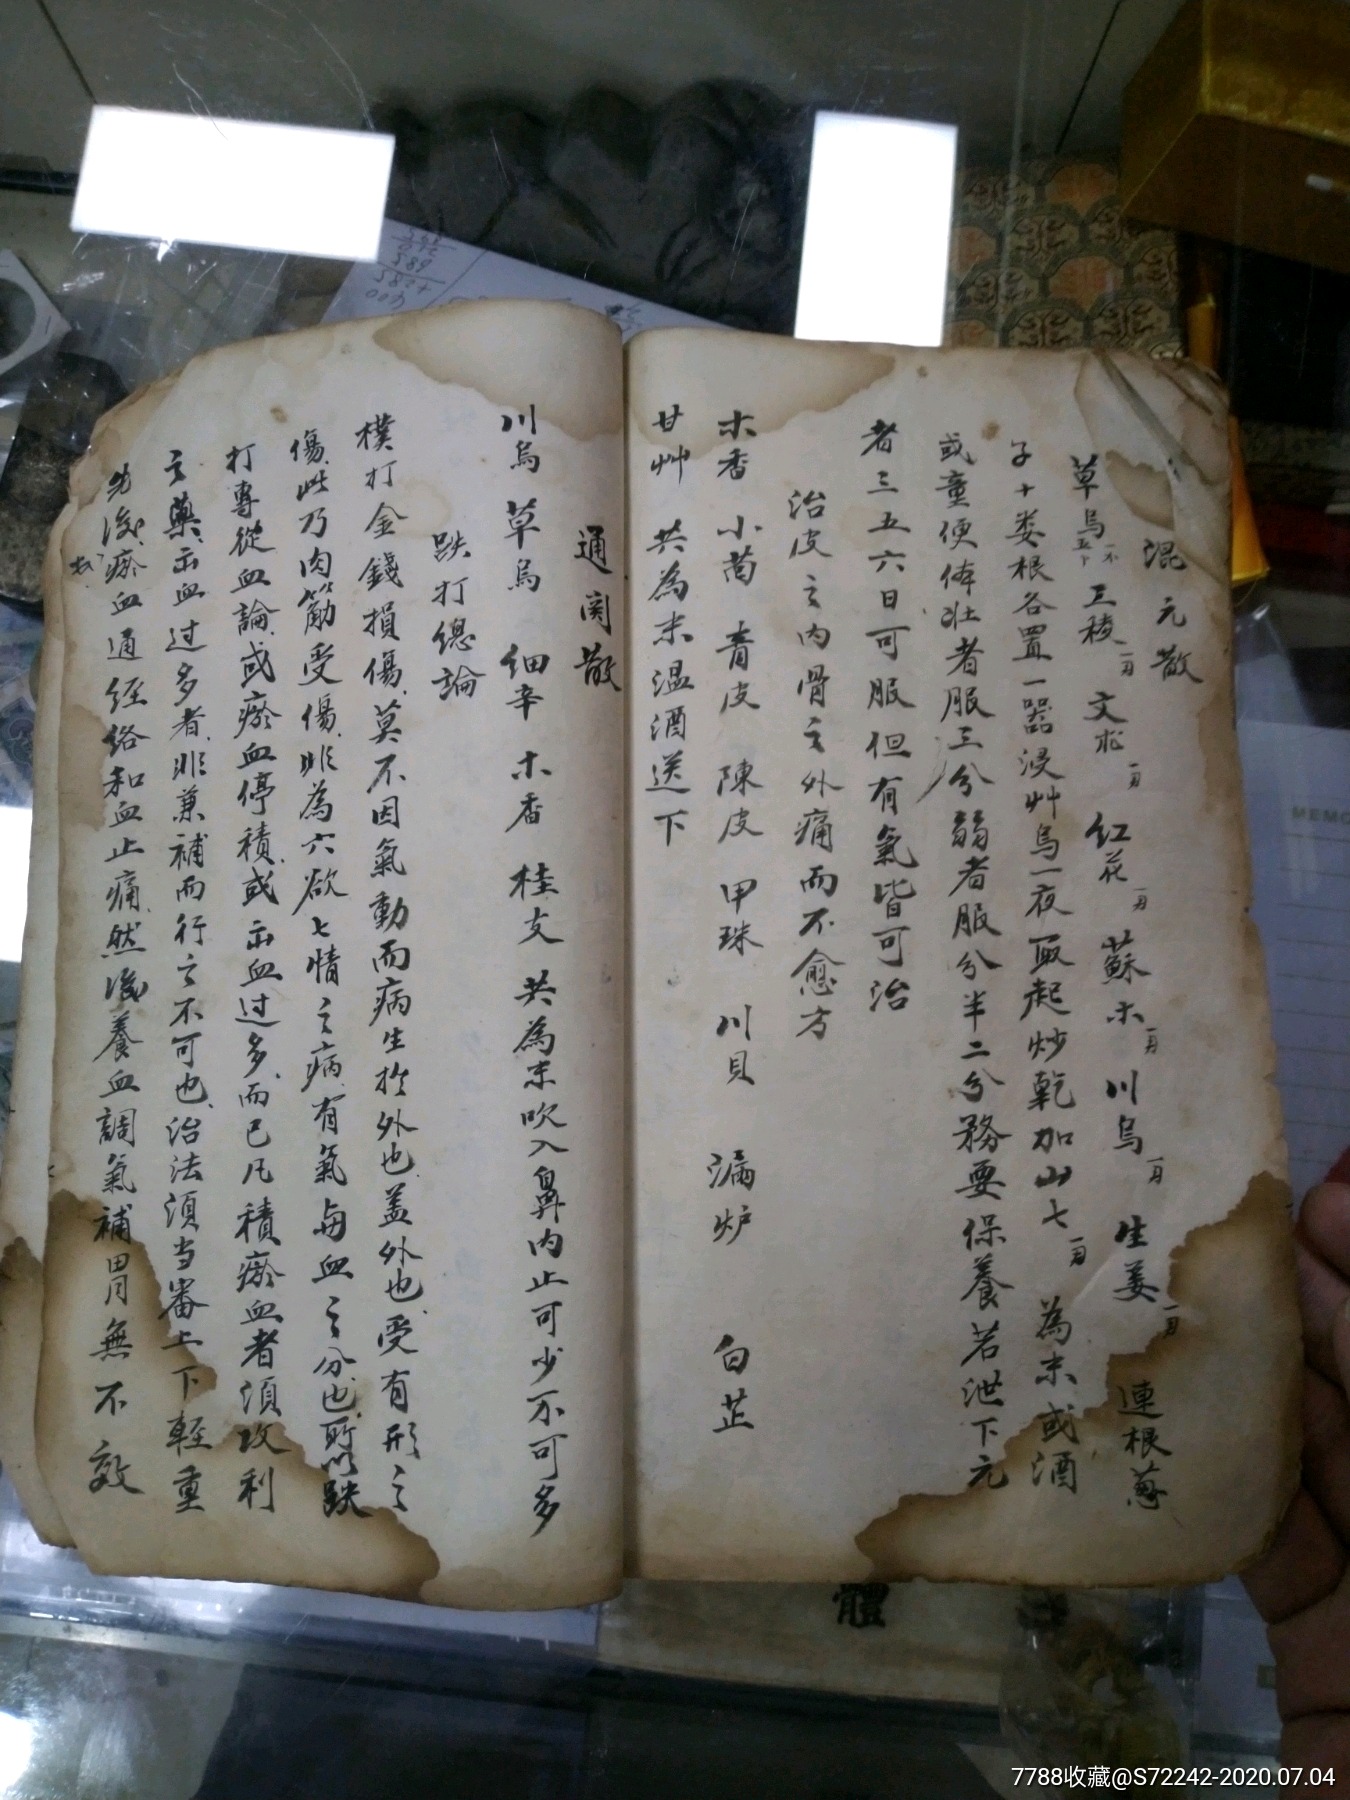 混元散
草烏 三稜 文朮 紅花 蘇木 川烏 生姜 連根蔥
子十娄根各置一器浸艸烏一夜取起炒乾加山七 為末或酒
或童便体壮者服三分弱者服分半二分務要保養若泄下元
者三五六日可服但有氣皆可治
治皮之内骨之外痛而不愈方
木香 小茴 青皮 陳皮 甲珠 川貝 漏炉 白芷
甘艸 共為末温酒送下
通関散
川烏 草烏 细辛 木香 桂支 共為末吹入鼻内止可少不可多
跌打總論
樸打金錢損傷莫不因氣動而病生於外也盖外也受有形之
傷此乃肉筋受傷非為六欲七情之病有氣与血之分也所以跌
打專從血論或瘀血停積或面血过多而已凡積瘀血者須攻利
之藥面血过多者非兼補而行之不可也治法須当審上下輕重
先後瘀血通经络和血止痛然後養血調氣補胃無不效
去
體
MEMO
7788收藏@S72242-2020.07.04